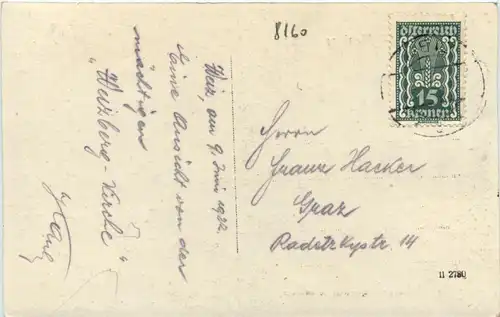 8160
Weiz, am 9. Juni 1922.
Eine Ansicht von der
mächtigen
"Weizberg-Kirche"
Herrn
Franz Hacker
Graz
Radetzkystr. 14
Österreich
15
Kronen
11 2780